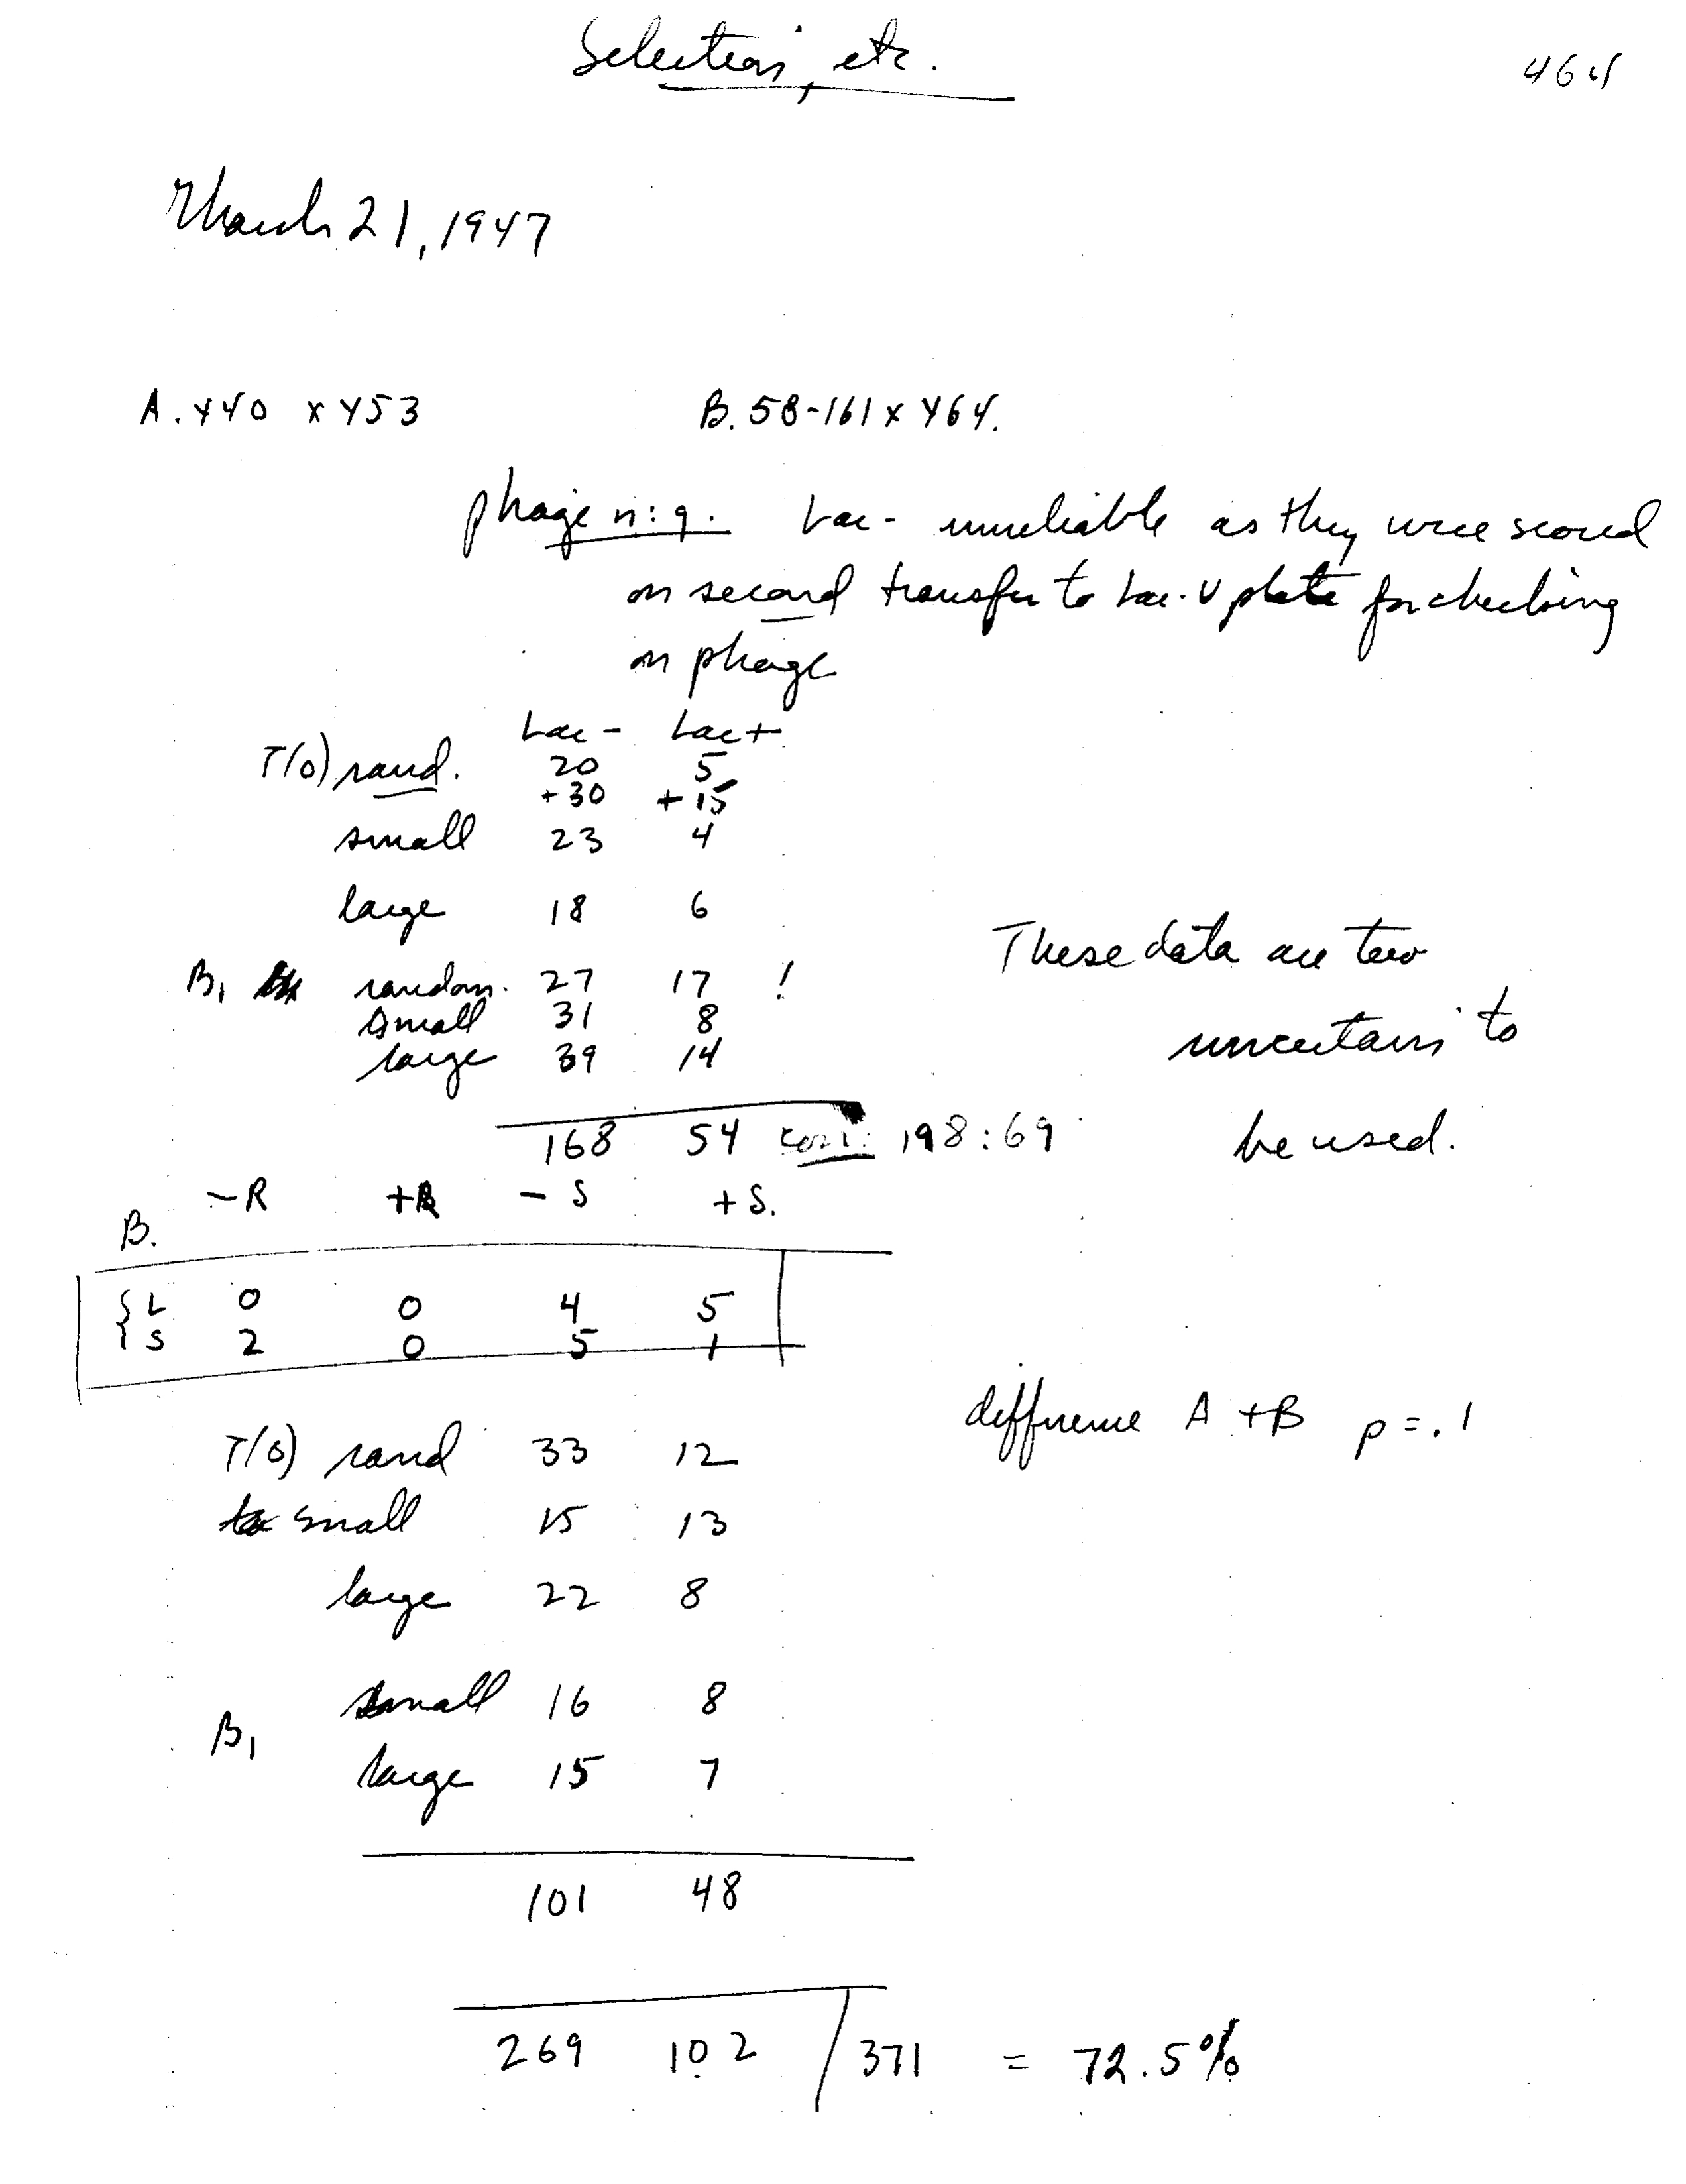 Selection, etc.
464
March 21, 1947
A. Y40 x Y53 B. 58-161 x Y64.
phage n:g. Lac- unreliable as they were scored
on second transfer to Lac-V plate for checking
on phage
Lac- Lac+
T(0) rand. 20 5
+30 +15
small 23 4
large 18 6
B1 random. 27 17 !
small 31 8
large 39 14
These data are too
uncertain to
be used.
168 54 corr: 198:69
-R +R -S +S.
B.
L 0 0 4 5
S 2 0 5 1
difference A + B p = .1
T(0) rand 33 12
small 15 13
large 22 8
B1 small 16 8
large 15 7
101 48
269 102 / 371 = 72.5%